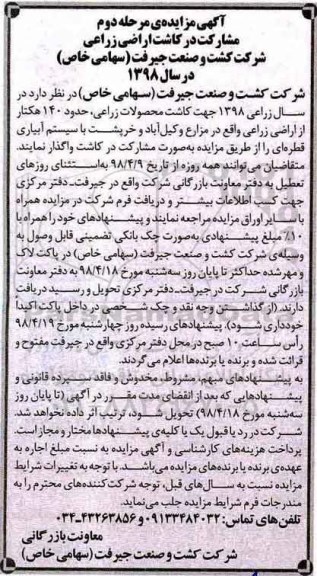 آگهی مزایده‌ی مرحله دوم
مشارکت در کاشت اراضی زراعی
شرکت کشت و صنعت جیرفت (سهامی خاص)
در سال ۱۳۹۸
شرکت کشت و صنعت جیرفت (سهامی خاص) در نظر دارد در
سال زراعی ۱۳۹۸ جهت کاشت محصولات زراعی، حدود ۱۴۰ هکتار
از اراضی زراعی واقع در مزارع وکیل‌آباد و خرپشت با سیستم آبیاری
قطره‌ای را از طریق مزایده به‌صورت مشارکت در کاشت واگذار نمایند.
متقاضیان می‌توانند همه روزه از تاریخ ۹۸/۴/۹ به‌استثنای روزهای
تعطیل به دفتر معاونت بازرگانی شرکت واقع در جیرفت-دفتر مرکزی
جهت کسب اطلاعات بیشتر و دریافت فرم شرکت در مزایده همراه
با سایر اوراق مزایده مراجعه نمایند و پیشنهادهای خود را همراه با
۱۰٪ مبلغ پیشنهادی به‌صورت چک بانکی تضمینی قابل وصول به
وسیله‌ی شرکت کشت و صنعت جیرفت (سهامی خاص) در پاکت لاک
و مهر شده حداکثر تا پایان روز سه‌شنبه مورخ ۹۸/۴/۱۸ به دفتر معاونت
بازرگانی شرکت در جیرفت-دفتر مرکزی تحویل و رسید دریافت
دارند. (از گذاشتن وجه نقد و چک شخصی در داخل پاکت اکیداً
خودداری شود). پیشنهادهای رسیده روز چهارشنبه مورخ ۹۸/۴/۱۹
رأس ساعت ۱۰ صبح در محل دفتر مرکزی واقع در جیرفت مفتوح و
قرائت شده و برنده یا برنده‌ها اعلام می‌گردند.
به پیشنهادهای مبهم، مشروط، مخدوش و فاقد سپرده قانونی و
پیشنهادهایی که بعد از انقضای مدت مقرر در آگهی (تا پایان روز
سه‌شنبه مورخ ۹۸/۴/۱۸) تحویل شود، ترتیب اثر داده نخواهد شد.
شرکت در رد یا قبول یک یا کلیه‌ی پیشنهادها مختار و مجاز است.
پرداخت هزینه‌های کارشناسی و آگهی مزایده به نسبت مبلغ اجاره به
عهده‌ی برنده یا برنده‌های مزایده می‌باشد. با توجه به تغییرات شرایط
مزایده نسبت به سال‌های قبل، توجه شرکت‌کننده‌های محترم را به
مندرجات فرم شرایط مزایده جلب می‌نماید.
تلفن‌های تماس: ۰۹۱۳۳۴۸۴۰۳۲ و ۴۳۲۶۳۸۵۶-۰۳۴
معاونت بازرگانی
شرکت کشت و صنعت جیرفت (سهامی خاص)